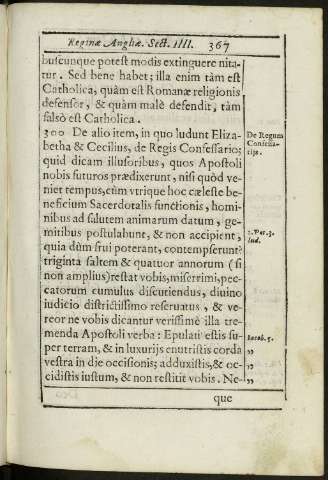 Reginæ Angliæ. Sect. IIII. 367
buscunque potest modis extinguere nita-
tur. Sed bene habet; illa enim tàm est
Catholica, quàm est Romanæ religionis
defensor, & quàm malè defendit, tàm
falsò est Catholica.
300 De alio item, in quo ludunt Eliza-
betha & Cecilius, de Regis Confessario;
quid dicam illusoribus, quos Apostoli
nobis futuros prædixerunt, nisi quòd ve-
niet tempus, cùm vtrique hoc cæleste be-
neficium Sacerdotalis functionis, homi-
nibus ad salutem animarum datum, ge-
mitibus postulabunt, & non accipient,
quia dùm frui poterant, contempserunt?
triginta saltem & quatuor annorum (si
non amplius) restat vobis, miserrimi, pec-
catorum cumulus discutiendus, diuino
iudicio districtissimo reseruatus, & ve-
reor ne vobis dicantur verissimè illa tre-
menda Apostoli verba: Epulati estis su-
per terram, & in luxurijs enutristis corda
vestra in die occisionis; adduxistis, & oc-
cidistis iustum, & non restitit vobis. Ne-
que
De Regum
Confessa-
rijs.
2. Pet. 3.
Iud.
Iacob. 5.
„
„
„